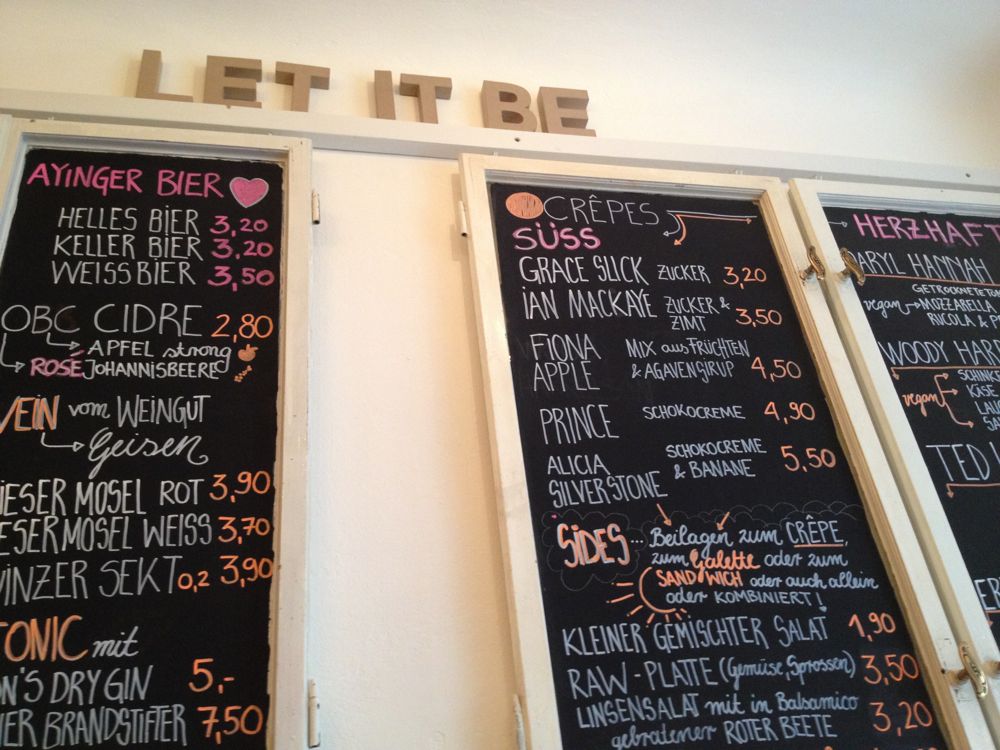 LET IT BE
AYINGER BIER
HELLES BIER 3,20
KELLER BIER 3,20
WEISSBIER 3,50
OBC CIDRE 2,80
APFEL strong
ROSÉ JOHANNISBEERE
VEIN vom WEINGUT
Geisen
IESER MOSEL ROT 3,90
ESER MOSEL WEISS 3,70
WINZER SEKT 0,2 3,90
TONIC mit
ON'S DRY GIN 5,-
IER BRANDSTIFTER 7,50
CRÊPES
SÜSS
GRACE SLICK ZUCKER 3,20
IAN MACKAYE ZUCKER & ZIMT 3,50
FIONA APPLE MIX aus FRÜCHTEN & AGAVENSIRUP 4,50
PRINCE SCHOKOCREME 4,90
ALICIA SILVERSTONE SCHOKOCREME & BANANE 5,50
SIDES... Beilagen zum CRÊPE,
zum Galette oder zum
SANDWICH oder auch allein
oder KOMBINIERT!
KLEINER GEMISCHTER SALAT 1,90
RAW-PLATTE (Gemüse, Sprossen) 3,50
LINSENSALAT mit in Balsamico
gebratener ROTER BEETE 3,20
HERZHAFT
ARYL HANNAH
GETROCKNETE TO
vegan MOZZARELLA
RUCOLA & P
WOODY HARR
SCHINKE
vegan KÄSE
LAU
SA
TED